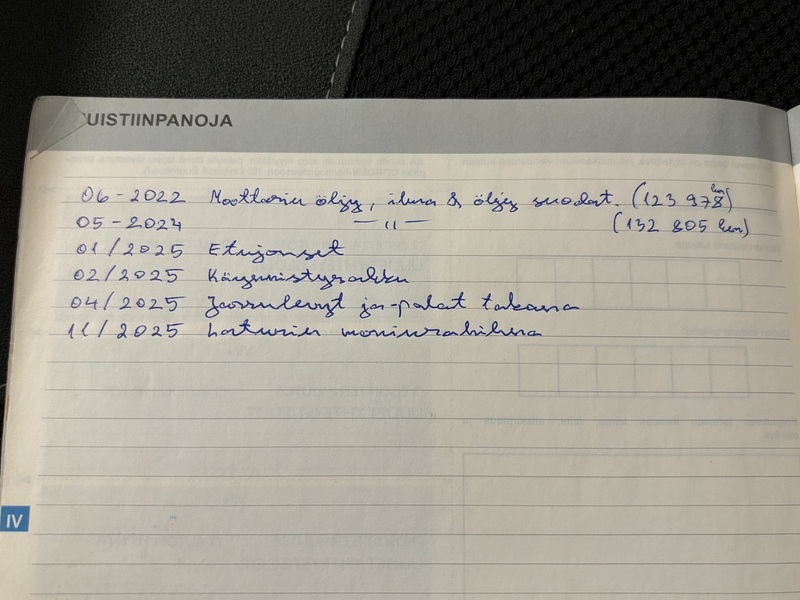 UISTIINPANOJA
06-2022 Moottorin öljy, ilma & öljy suodat. (123 978 km)
05-2024 —〃— (132 805 km)
01/2025 Etujouset
02/2025 Käynnistysakku
04/2025 Jarrulevyt ja -palat takana
11/2025 Laturin moniurahihna
IV